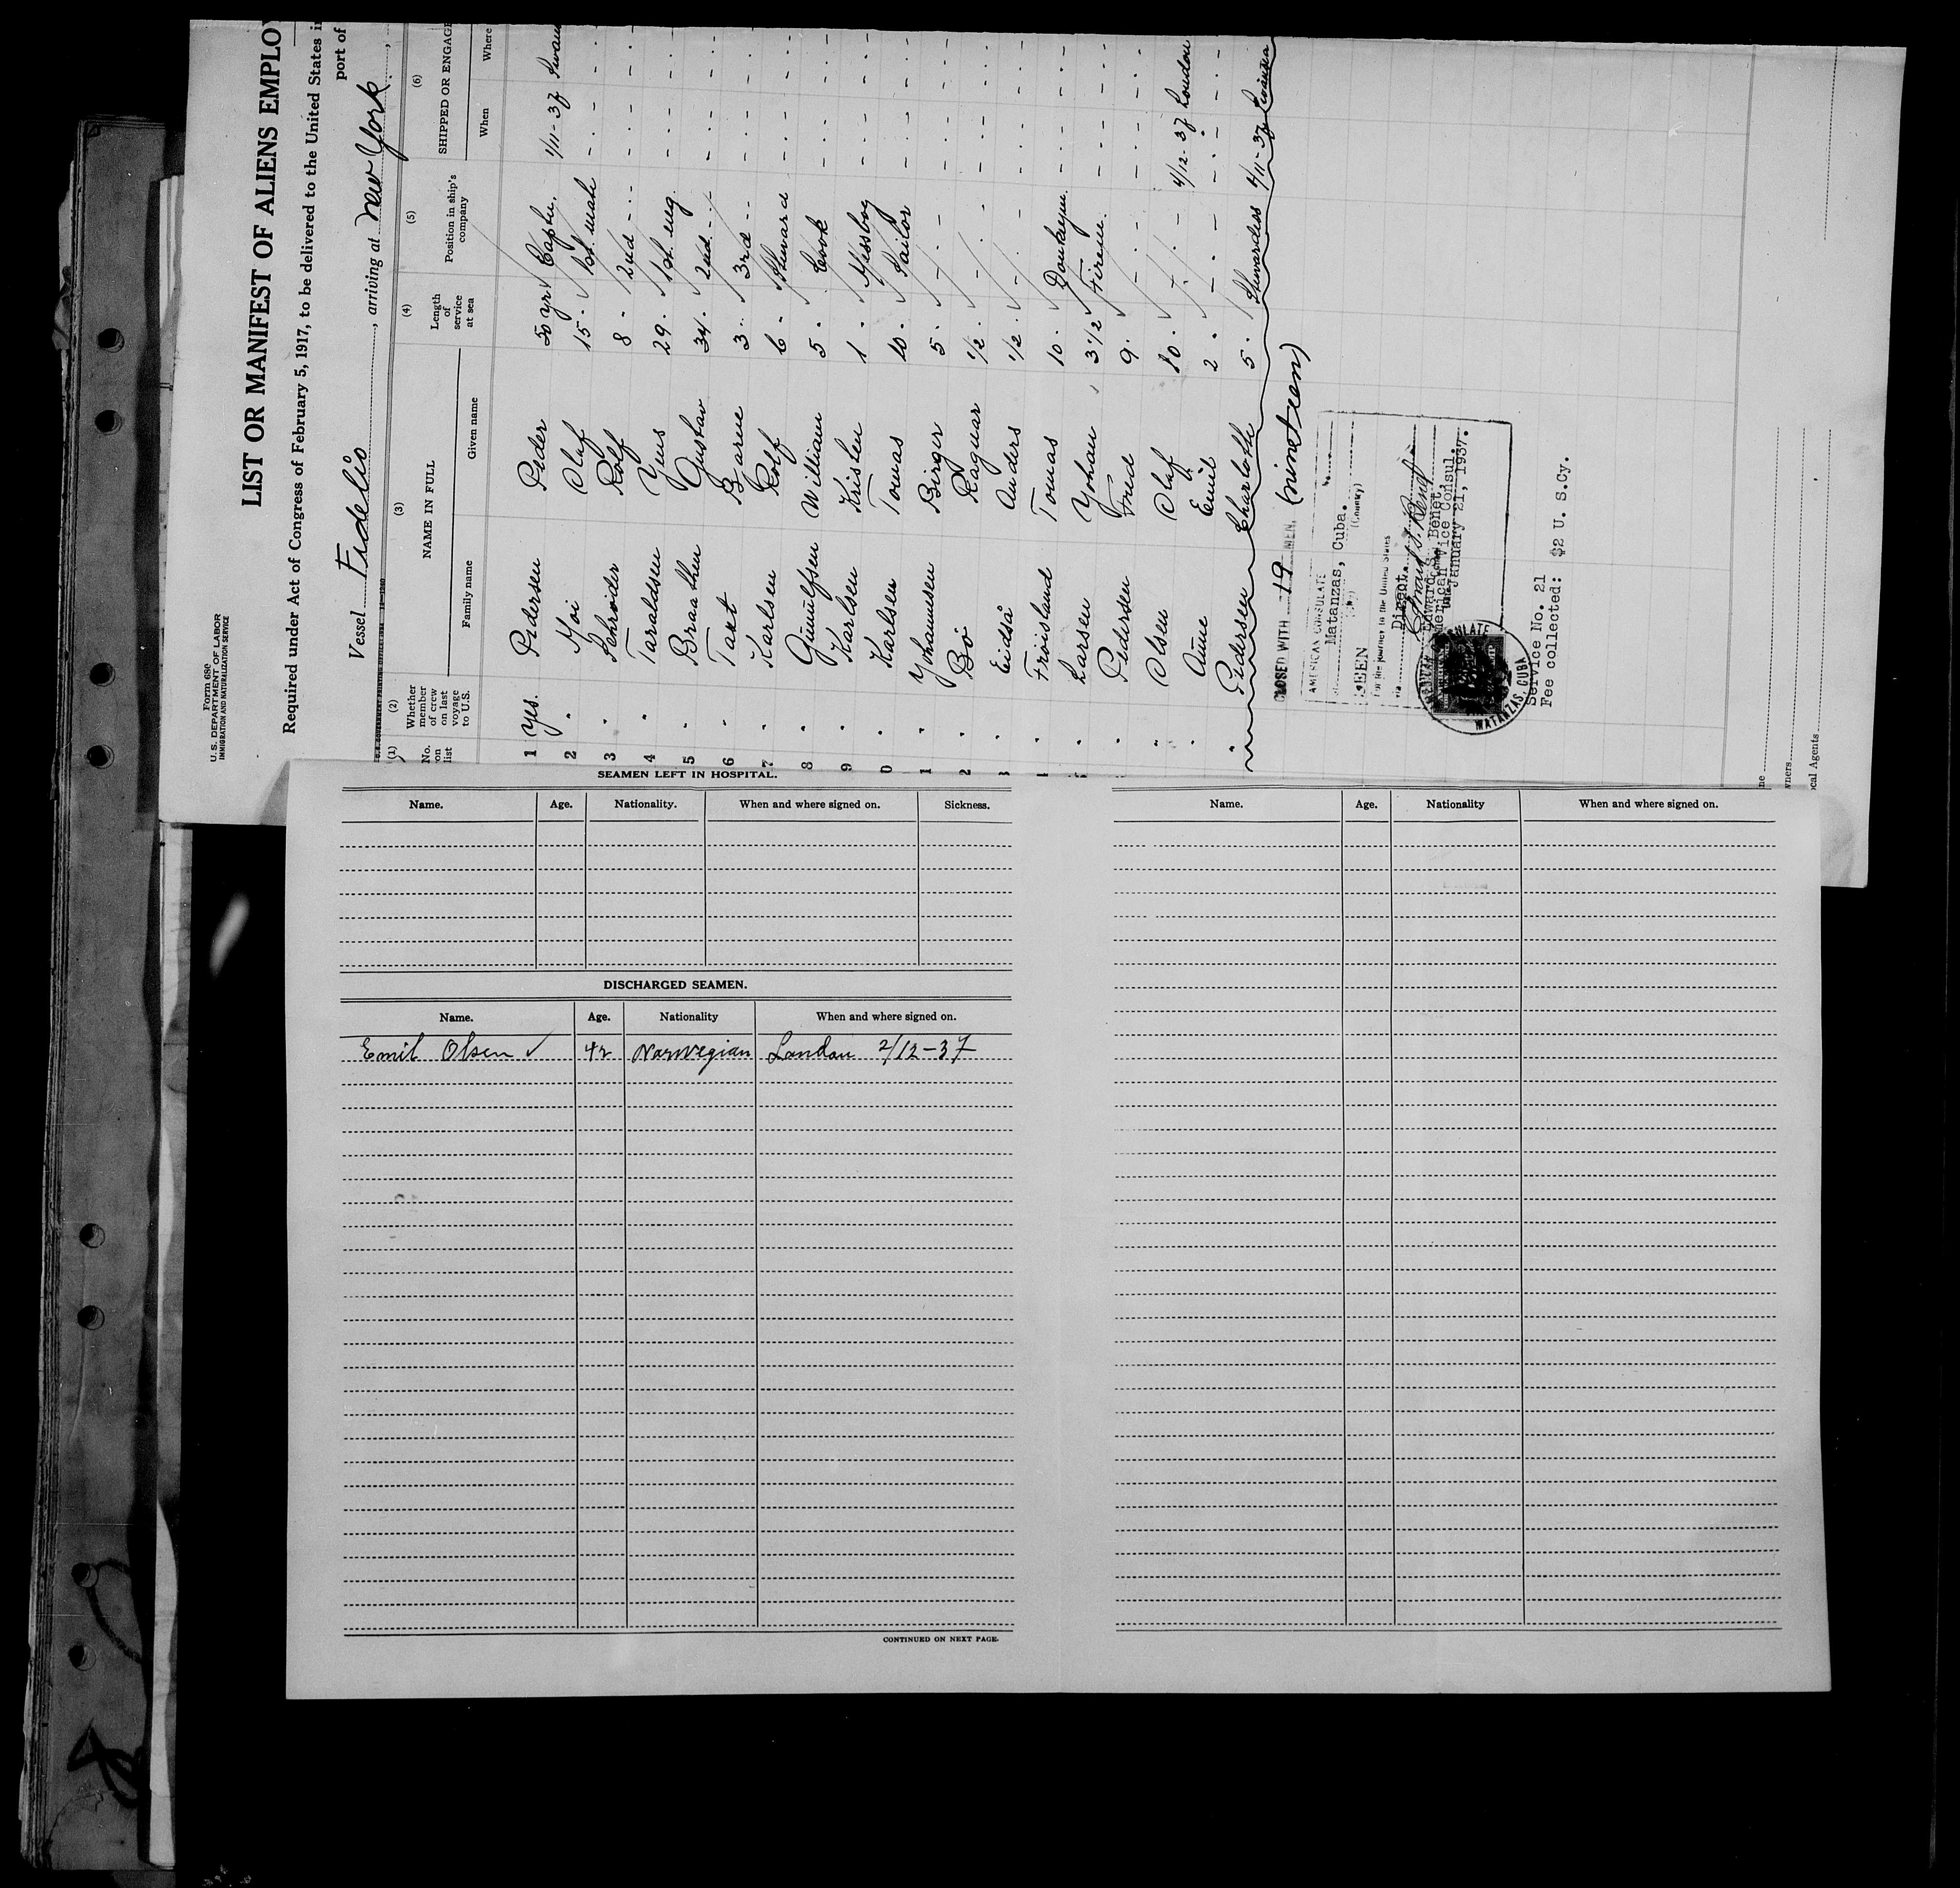 Form 680
U. S. DEPARTMENT OF LABOR
IMMIGRATION AND NATURALIZATION SERVICE
LIST OR MANIFEST OF ALIENS EMPLOY
Required under Act of Congress of February 5, 1917, to be delivered to the United States i
Vessel Fidelio, arriving at New York, port of
(1) No. on list (2) Whether member of crew on last voyage to U.S. (3) NAME IN FULL Family name Given name (4) Length of service at sea (5) Position in ship's company (6) SHIPPED OR ENGAGE When Where
1 yes. Pedersen Peder 50 yrs Captn. 1/11-37
2 " Moi Olaf 15 " 1st. mate
3 " Schröder Rolf 8 " 2nd --
4 " Taraldsen Yens 29 " 1st. eng.
5 " Braathen Gustav 34 " 2nd --
6 " Taxt Barne 3 " 3rd --
7 " Karlsen Rolf 6 " Steward
8 " Gunnulfsen William 5 " Cook
9 " Karlsen Kristen 1 " Messboy
0 " Karlsen Tomas 10 " Sailor
1 " Yohannesen Birger 5 " -
2 " Bö Ragnar 1/2 " -
" Eidså Anders 1/2 " -
" Fröisland Tomas 10 " Donkeym.
" Larsen Yohan 3 1/2 Firem.
" Pedersen Fred 9 " -
" Olsen Olaf 10 " - 4/12-37 London
" Aune Emil 2 " -
" Pedersen Charlotte 5 " Stewardess 1/11-37
CLOSED WITH 19 MEN, (nineteen)
AMERICAN CONSULATE
Matanzas, Cuba.
(Country)
SEEN
For the journey to the United States
via Direct.
Edward S. Benet,
American Vice Consul.
January 21, 1937.
AMERICAN CONSULATE MATANZAS, CUBA
Service No. 21
Fee collected: $2 U. S.Cy.
ocal Agents
SEAMEN LEFT IN HOSPITAL.
Name. Age. Nationality. When and where signed on. Sickness.
DISCHARGED SEAMEN.
Name. Age. Nationality When and where signed on.
Emil Olsen ✓ 42 Norwegian London 2/12-37
CONTINUED ON NEXT PAGE.
Name. Age. Nationality When and where signed on.